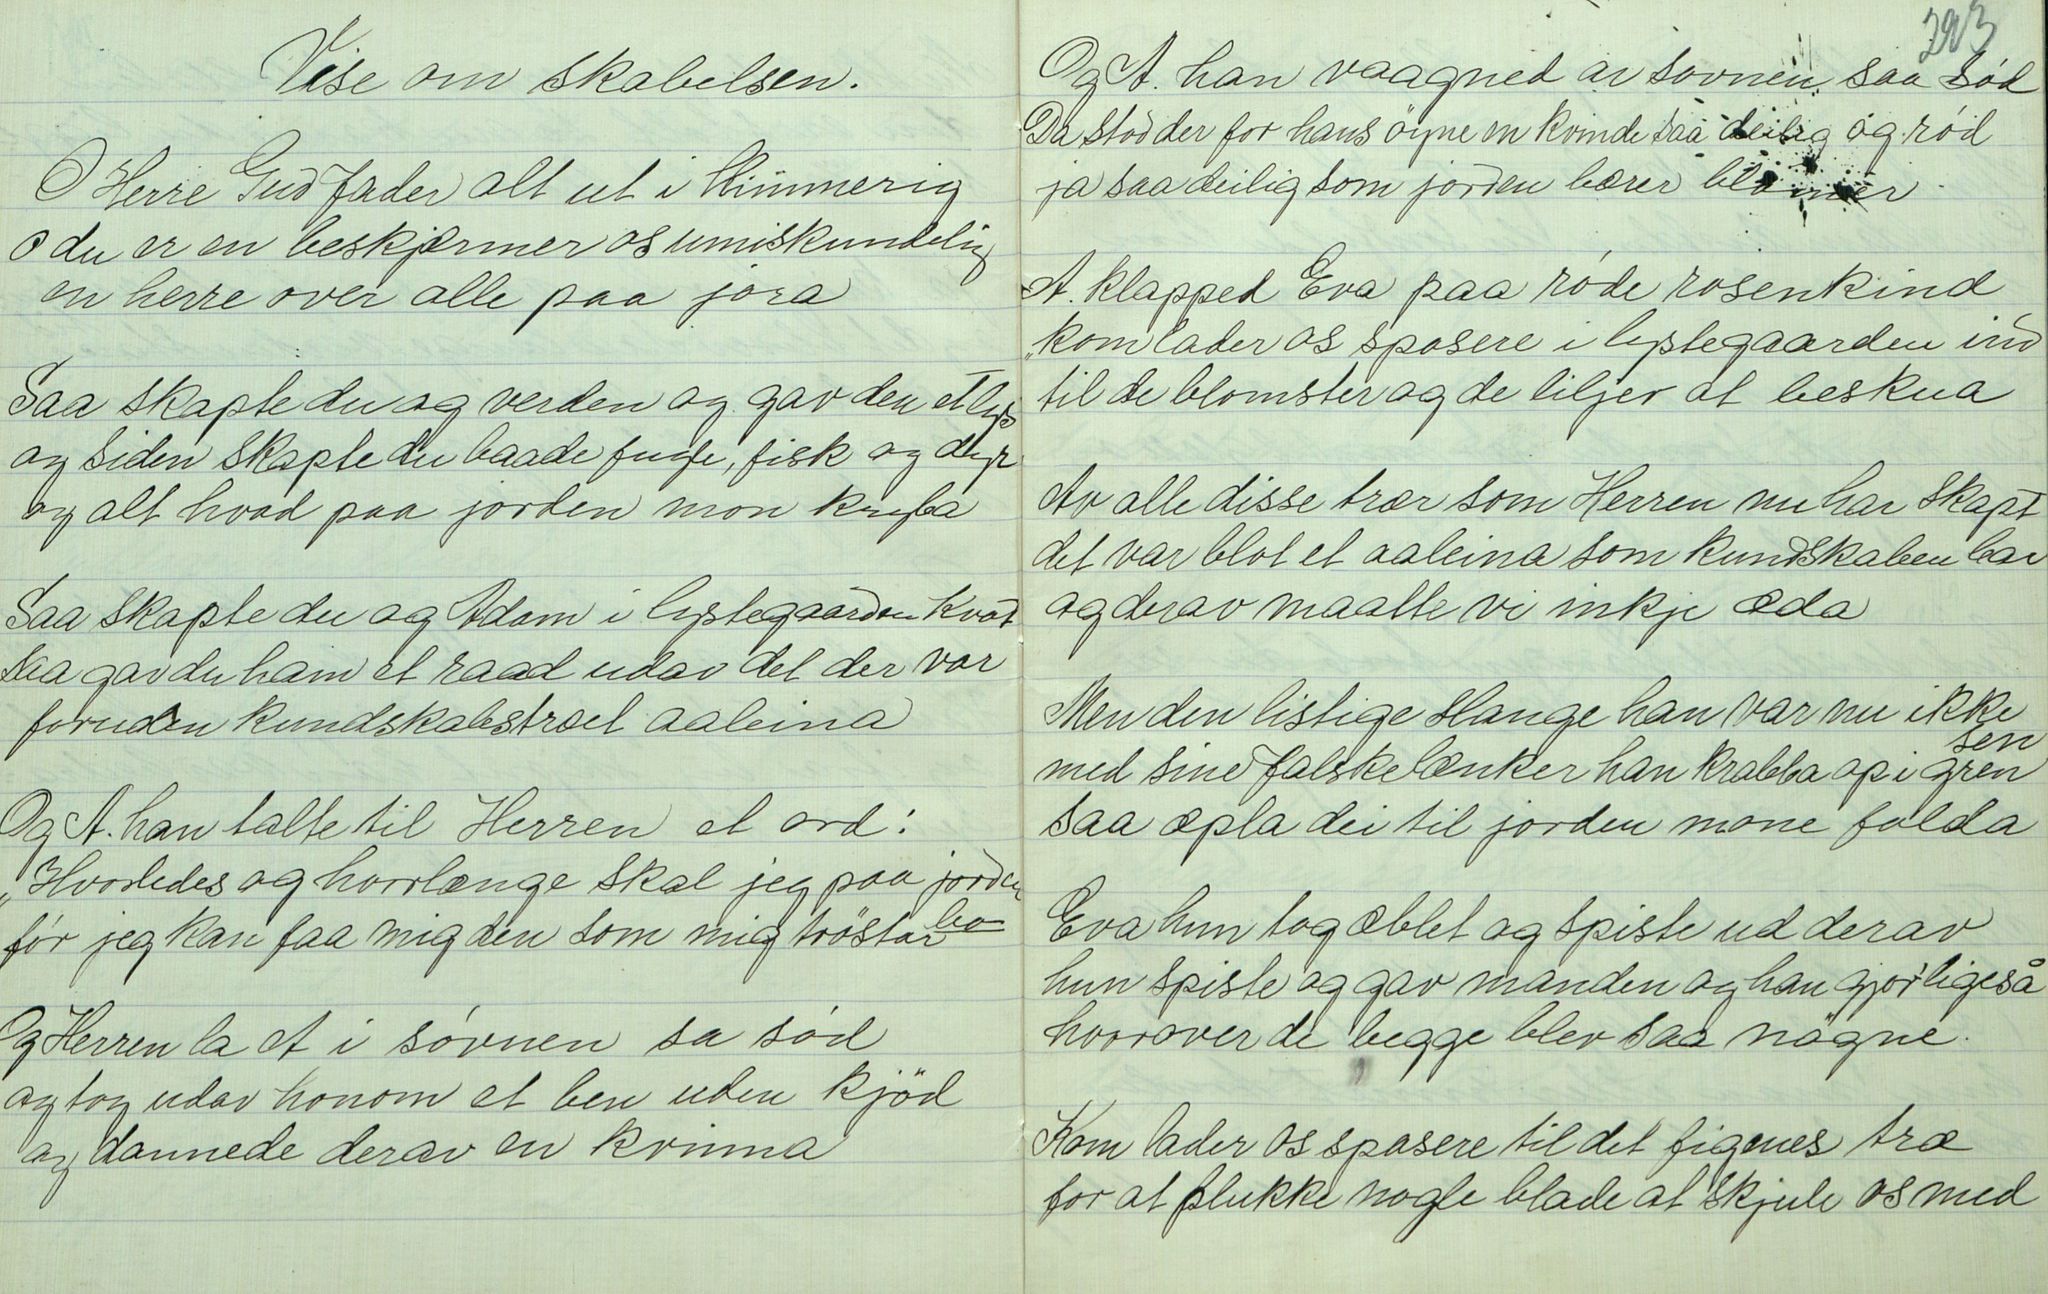 Vise om skabelsen.
O Herre Gud fader alt ut i Himmerig
o du er en beskjærmer os umiskundelig
en herre over alle paa jora
Saa skapte du og verden og gav den et lys
og siden skapte du baade fugle, fisk og dyr
og alt hvad paa jorden mon kryba
Saa skapte du og Adam i lystegaarden kvat
saa gav du ham et raad udav det der var
foruden kundskabstræet aaleina
Og A. han talte til Herren et ord:
„Hvorledes og hvorlænge skal jeg paa jorden bo
før jeg kan faa mig den som mig tröstar
Og Herren la A i søvnen sa sød
og tog udav honom et ben uden kjöd
og dannede derav en kvinna
293
Og A. han vaagned av søvnen saa sød
Da stod der for hans öyne en kvinde saa deilig og rød
ja saa deilig som jorden bærer blommer
A. klapped Eva paa røde rosenkind
„kom lader os spasere i lystegaarden ind
til de blomster og de liljer at beskua
Av alle disse trær som Herren nu har skapt
det var blot et aaleina som kundskaben bar
og derav maatte vi inkje æda
Men den listige slange han var nu ikke sen
med sine falske lænker han krabba op i gren
saa æpla dei til jorden mone falda
Eva hun tog æblet og spiste ud derav
hun spiste og gav manden og han gjor ligeså
hvorover de begge blev saa nögne.
Kom lader os spasere til det figenes træ
for at plukke nogle blade at skjule os med